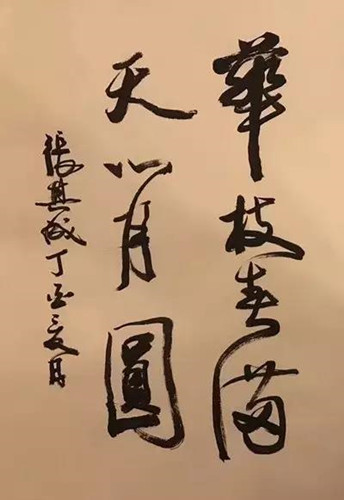 華枝春滿
天心月圓
張其成丁酉夏月